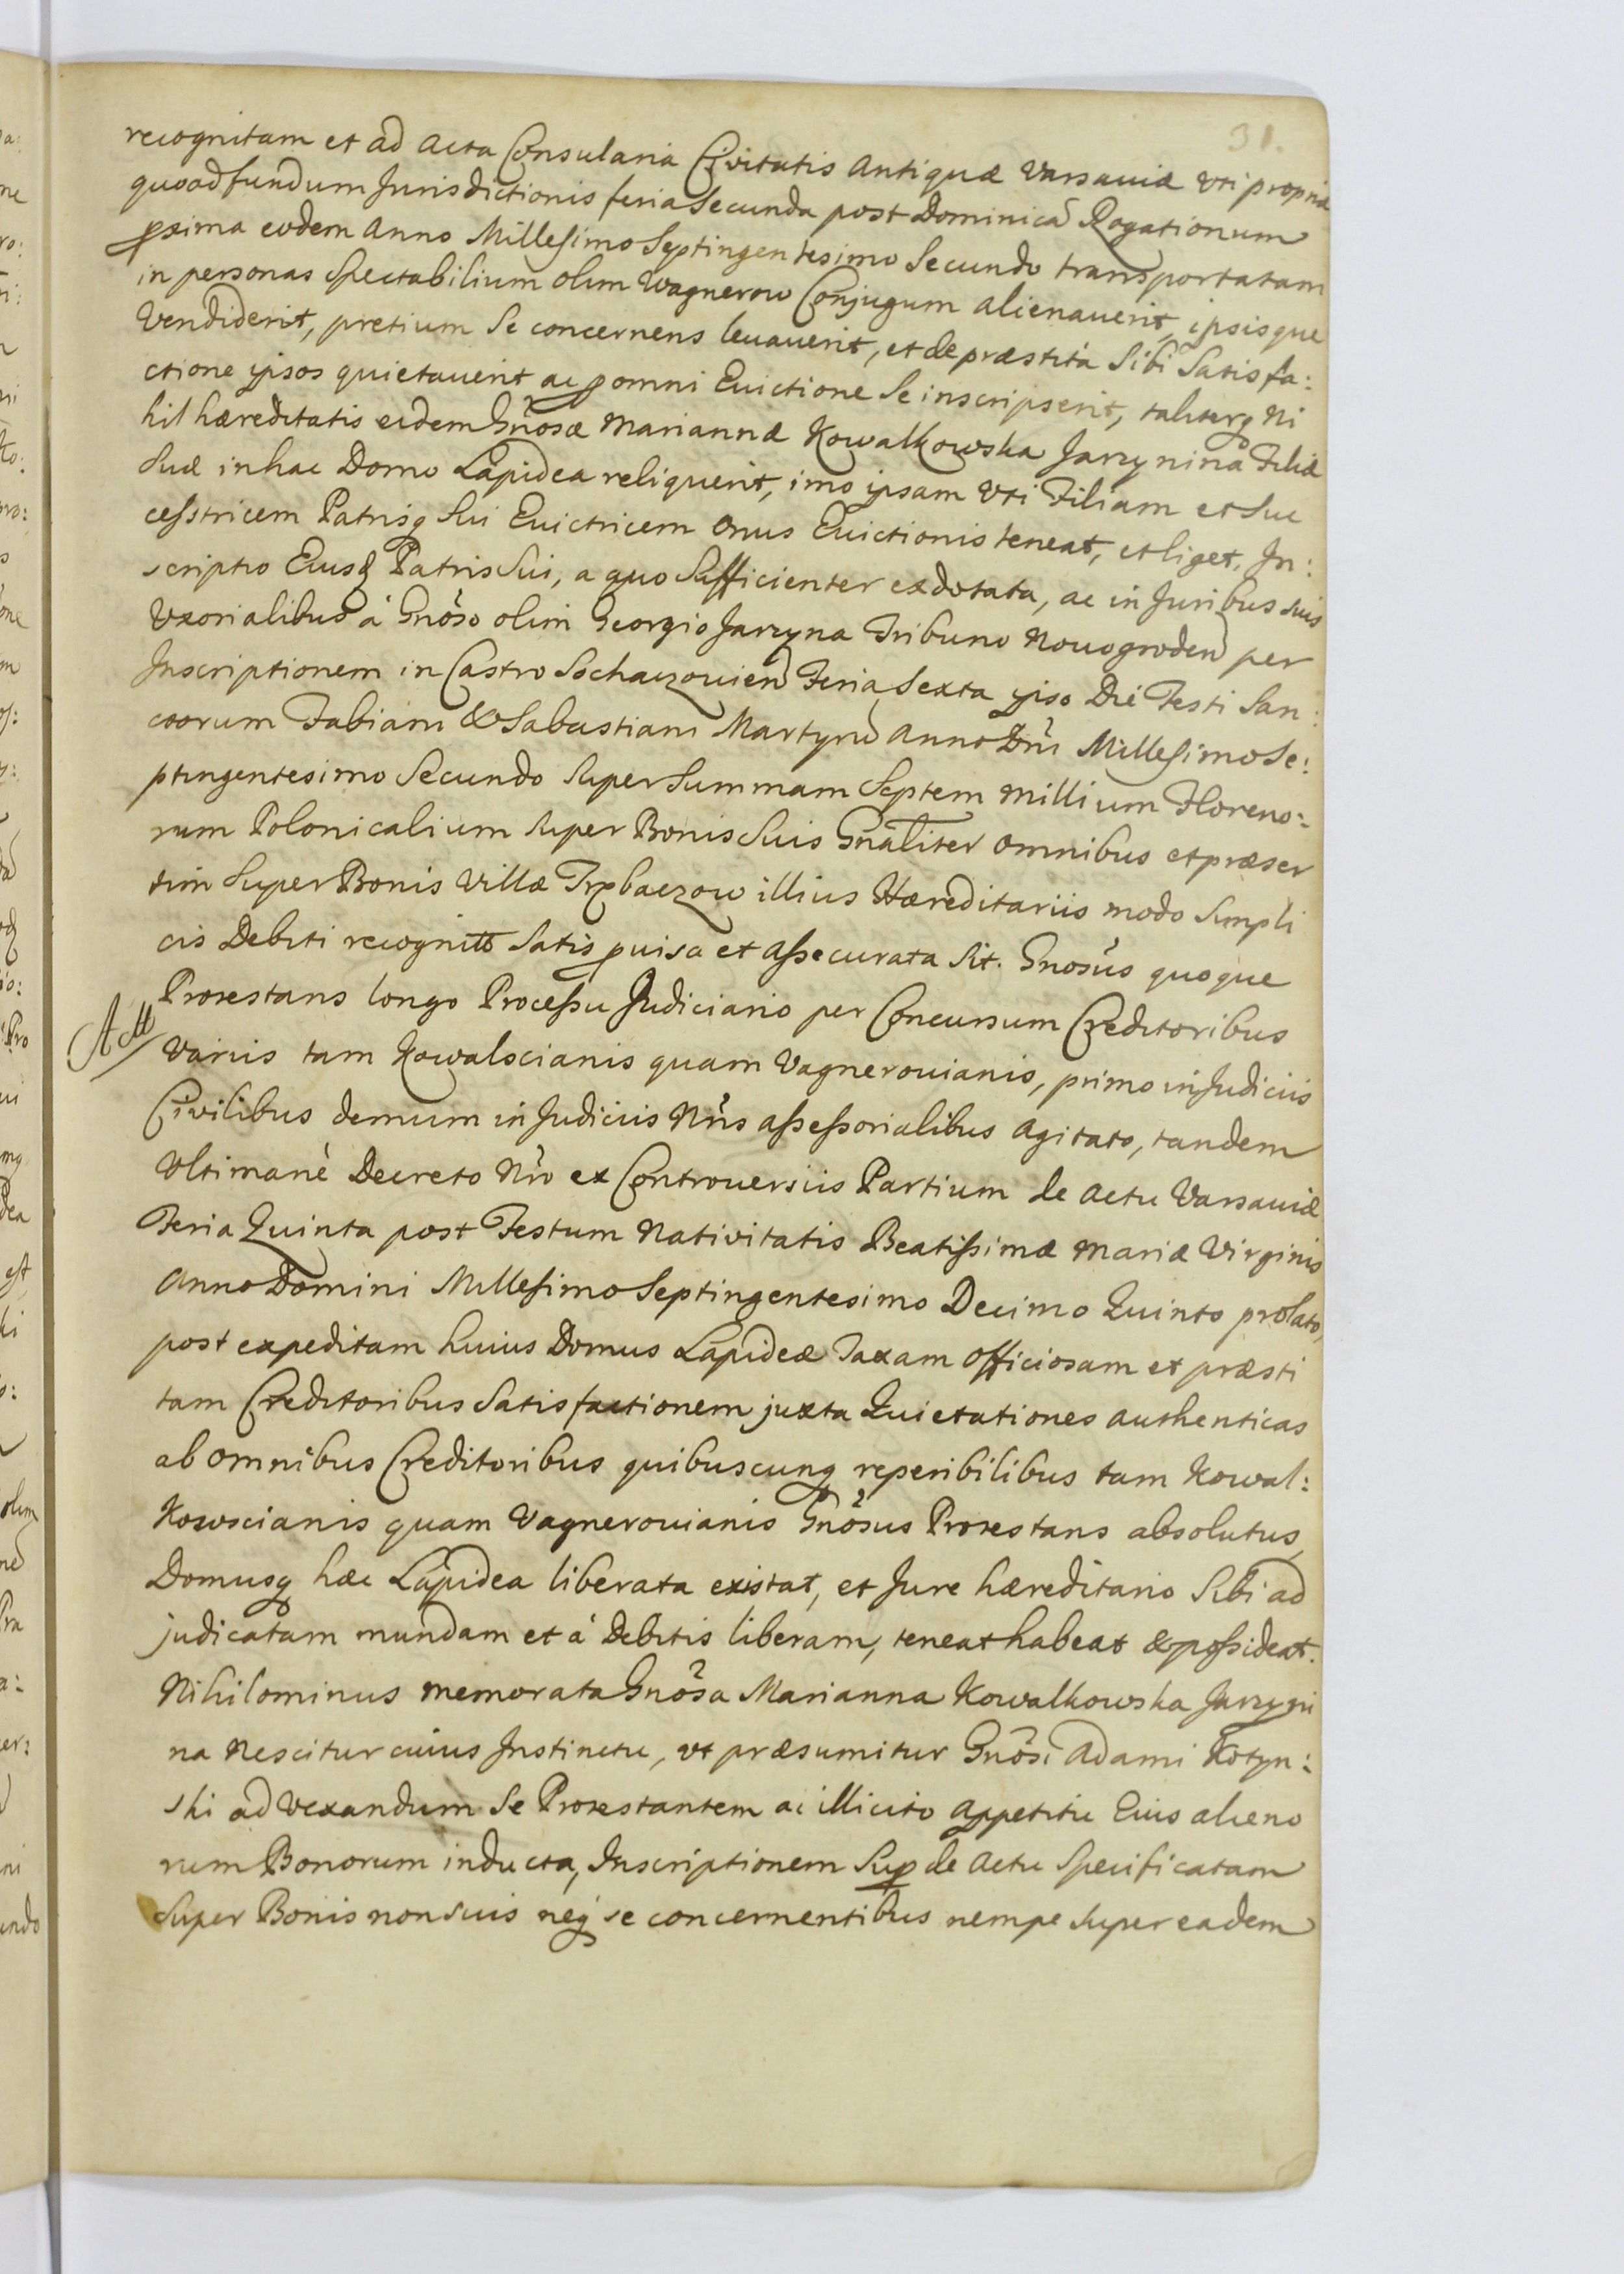 31.
recognitam et ad Acta Consularia Civitatis Antiquæ Varsaviæ uti propria
quoad fundum Jurisdictionis feria Secunda post Dominicã Rogationum
pxima eodem Anno Millesimo Septingentesimo Secundo transportatam
in personas Spectabilium olim Wagnerow Conjugum alienauerit, ipsisque
Vendiderit, pretium Se concernens leuauerit, et de præstita Sibi Satisfa:
ctione ipsos quietauerit ac p omni Euictione Se inscripserit, taliterq Ni
hil hæreditatis eidem Gnosæ Mariannæ Kowalkowska Jarzynina Filiæ
Suæ in hac Domo Lapidea reliquerit, imo ipsam Vti Filiam et Suc
cesstricem Patrisq Sui Euictricem Onus Euictionis teneat, et liget, In:
scriptio Eiusq Patris Sui, a quo Sufficienter exdotata, ac in Juribus suis
Uxorialibus à Gnoso olim Georgio Jarzyna Tribuno Nouogroden per
Inscriptionem in Castro Sochaczouien Feria Sexta ipso Die Festi San:
ctorum Fabiani & Sabastiani Martyru Anno Dni Millesimo Se:
ptingentesimo Secundo Super Summam Septem Millium Floreno:
rum Polonicalium Super Bonis Suis Gnaliter omnibus et præser
tim Super Bonis Villæ Trębaczow illius Hæreditariis modo Simpli
cis Debiti recognito Satis puisa et assecurata Sit. Gnosus quoque
Protestans longo Processu Judiciario per Concursum Creditoribus
Variis tam Kowalscianis quam Vagnerouianis, primo in Judiciis
Civilibus demum in Judiciis Nris assessorialibus agitato, tandem
Ultimanè Decreto Nro ex Controuersiis Partium de Actu Varsaviæ
Feria Quinta post Festum Nativitatis Beatissimæ Mariæ Virginis
Anno Domini Millesimo Septingentesimo Decimo Quinto prolato,
post expeditam huius Domus Lapideæ Taxam officiosam et præsti
tam Creditoribus Satisfactionem juxta Quietationes authenticas
ab omnibus Creditoribus quibuscunq reperibilibus tam Kowal:
kowscianis quam Vagnerouianis Gnosus Protestans absolutus,
Domusq hæc Lapidea liberata existat, et Jure hæreditario Sibi ad
judicatam mundam et à Debitis liberam, teneat habeat & possideat.
Nihilominus memorata Gnosa Marianna Kowalkowska Jarzyni
na Nescitur cuius Instinctu, ut præsumitur Gnosi Adami Kotyn:
ski ad vexandum Se Protestantem ac illicito appetitu Eius alieno
rum Bonorum inducta, Inscriptionem Sup de Actu Specificatam
Super Bonis non suis neq se concernentibus nempe super eadem